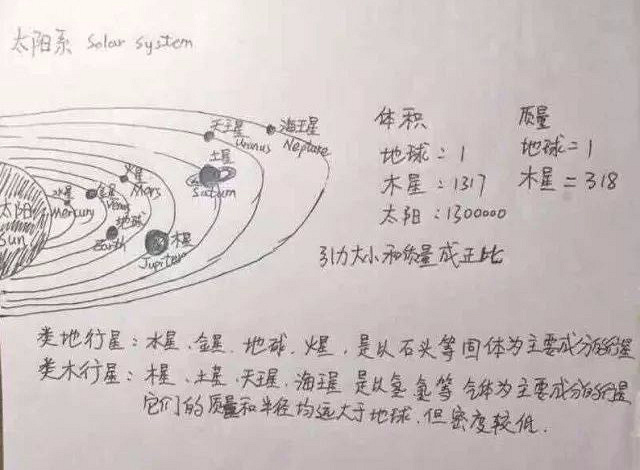 太阳系 Solar System
天王星 Urinus
海王星 Neptune
土星 Saturn
火星 Mars
水星 mercury
金星 Venus
太阳 Sun
地球 Earth
木星 Jupiter
体积
地球:1
木星:1317
太阳:1300000
质量
地球=1
木星=318
引力大小和质量成正比
类地行星:水星、金星、地球、火星,是以石头等固体为主要成分的行星
类木行星:木星、土星、天王星、海王星 是以氢氦等气体为主要成分的行星
它们的质量和半径均远大于地球,但密度较低.